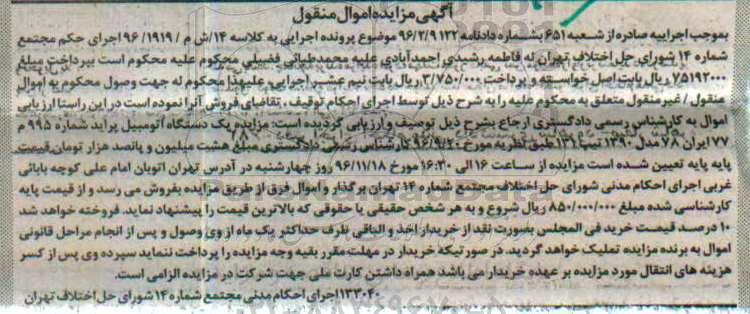 آگهی مزایده اموال منقول
بموجب اجراییه صادره از شعبه ۶۵۱ بشماره دادنامه ۹۶/۲/۹ ۱۲۲ موضوع پرونده اجرایی به کلاسه ۱۴/ش م / ۱۹۱۹/ ۹۶ اجرای حکم مجتمع
شماره ۱۴ شورای حل اختلاف تهران له فاطمه رشیدی احمدآبادی علیه محمد طبائی فضیلی محکوم علیه محکوم است بپرداخت مبلغ
۷۵۱۹۲۰۰۰ ریال بابت اصل خواسته و پرداخت ۳/۷۵۰/۰۰۰ ریال بابت نیم عشر اجرایی و علیهذا محکوم له جهت وصول محکوم به اموال
منقول / غیرمنقول متعلق به محکوم علیه را به شرح ذیل توسط اجرای احکام توقیف ، تقاضای فروش آنرا نموده است در این راستا ارزیابی
اموال به کارشناس رسمی دادگستری ارجاع بشرح ذیل توصیف و ارزیابی گردیده است: مزایده یک دستگاه اتومبیل پراید شماره ۹۹۵ م
۷۷ ایران ۷۸ مدل ۱۳۹۰ تیپ ۱۳۱ طبق نظریه مورخ ۹۶/۹/۲۰ کارشناس رسمی دادگستری مبلغ هشت میلیون و پانصد هزار تومان قیمت
پایه پایه تعیین شده است مزایده از ساعت ۱۶ الی ۱۶:۳۰ مورخ ۹۶/۱۱/۱۸ روز چهارشنبه در آدرس تهران اتوبان امام علی کوچه بابائی
غربی اجرای احکام مدنی شورای حل اختلاف مجتمع شماره ۱۴ تهران برگذار و اموال فوق از طریق مزایده بفروش می رسد و از قیمت پایه
کارشناسی شده مبلغ ۸۵/۰۰۰/۰۰۰ ریال شروع و به هر شخص حقیقی یا حقوقی که بالاترین قیمت را پیشنهاد نماید. فروخته خواهد شد
۱۰ درصد قیمت خرید فی المجلس بصورت نقد از خریدار اخذ و الباقی ظرف حداکثر یک ماه از وی وصول و پس از انجام مراحل قانونی
اموال به برنده مزایده تملیک خواهد گردید. در صورتیکه خریدار در مهلت مقرر بقیه وجه مزایده را پرداخت ننماید سپرده وی پس از کسر
هزینه های انتقال مورد مزایده بر عهده خریدار می باشد همراه داشتن کارت ملی جهت شرکت در مزایده الزامی است.
۱۳۳۰۴۰ اجرای احکام مدنی مجتمع شماره ۱۴ شورای حل اختلاف تهران